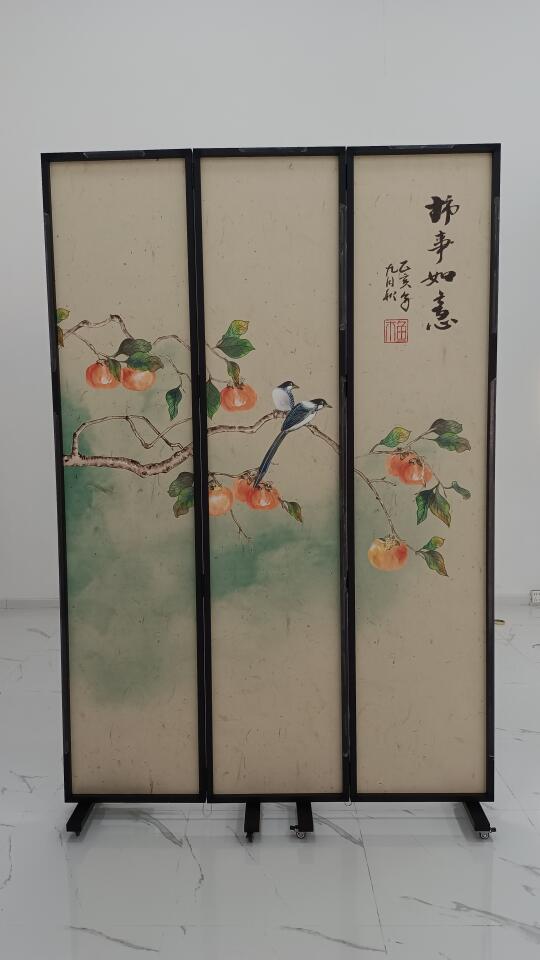 柿事如意
己亥年
九月彬